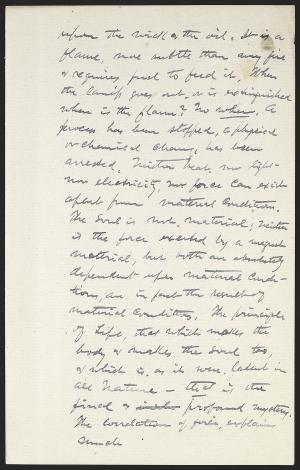 upon the wick & the oil. It is a
flame, more subtle than any fire
& requires fuel to feed it. When
the lamp goes out, or is extinguished
where is the flame? No where. A
process has been stopped, a physical
or chemical change has been
arrested. Neither heat, nor light
nor electricity, nor force can exist
apart from material conditions.
The Soul is not material; neither
is the force exerted by a magnet
material, but both are absolutely
dependent upon material condi-
tions, are in fact the result of
material conditions. The principle
of Life, that which makes the
body & makes the Soul too,
& which is, as it were, latent in
all Nature – that is the
final & profound mystery.
The correlation of forces, explains
much